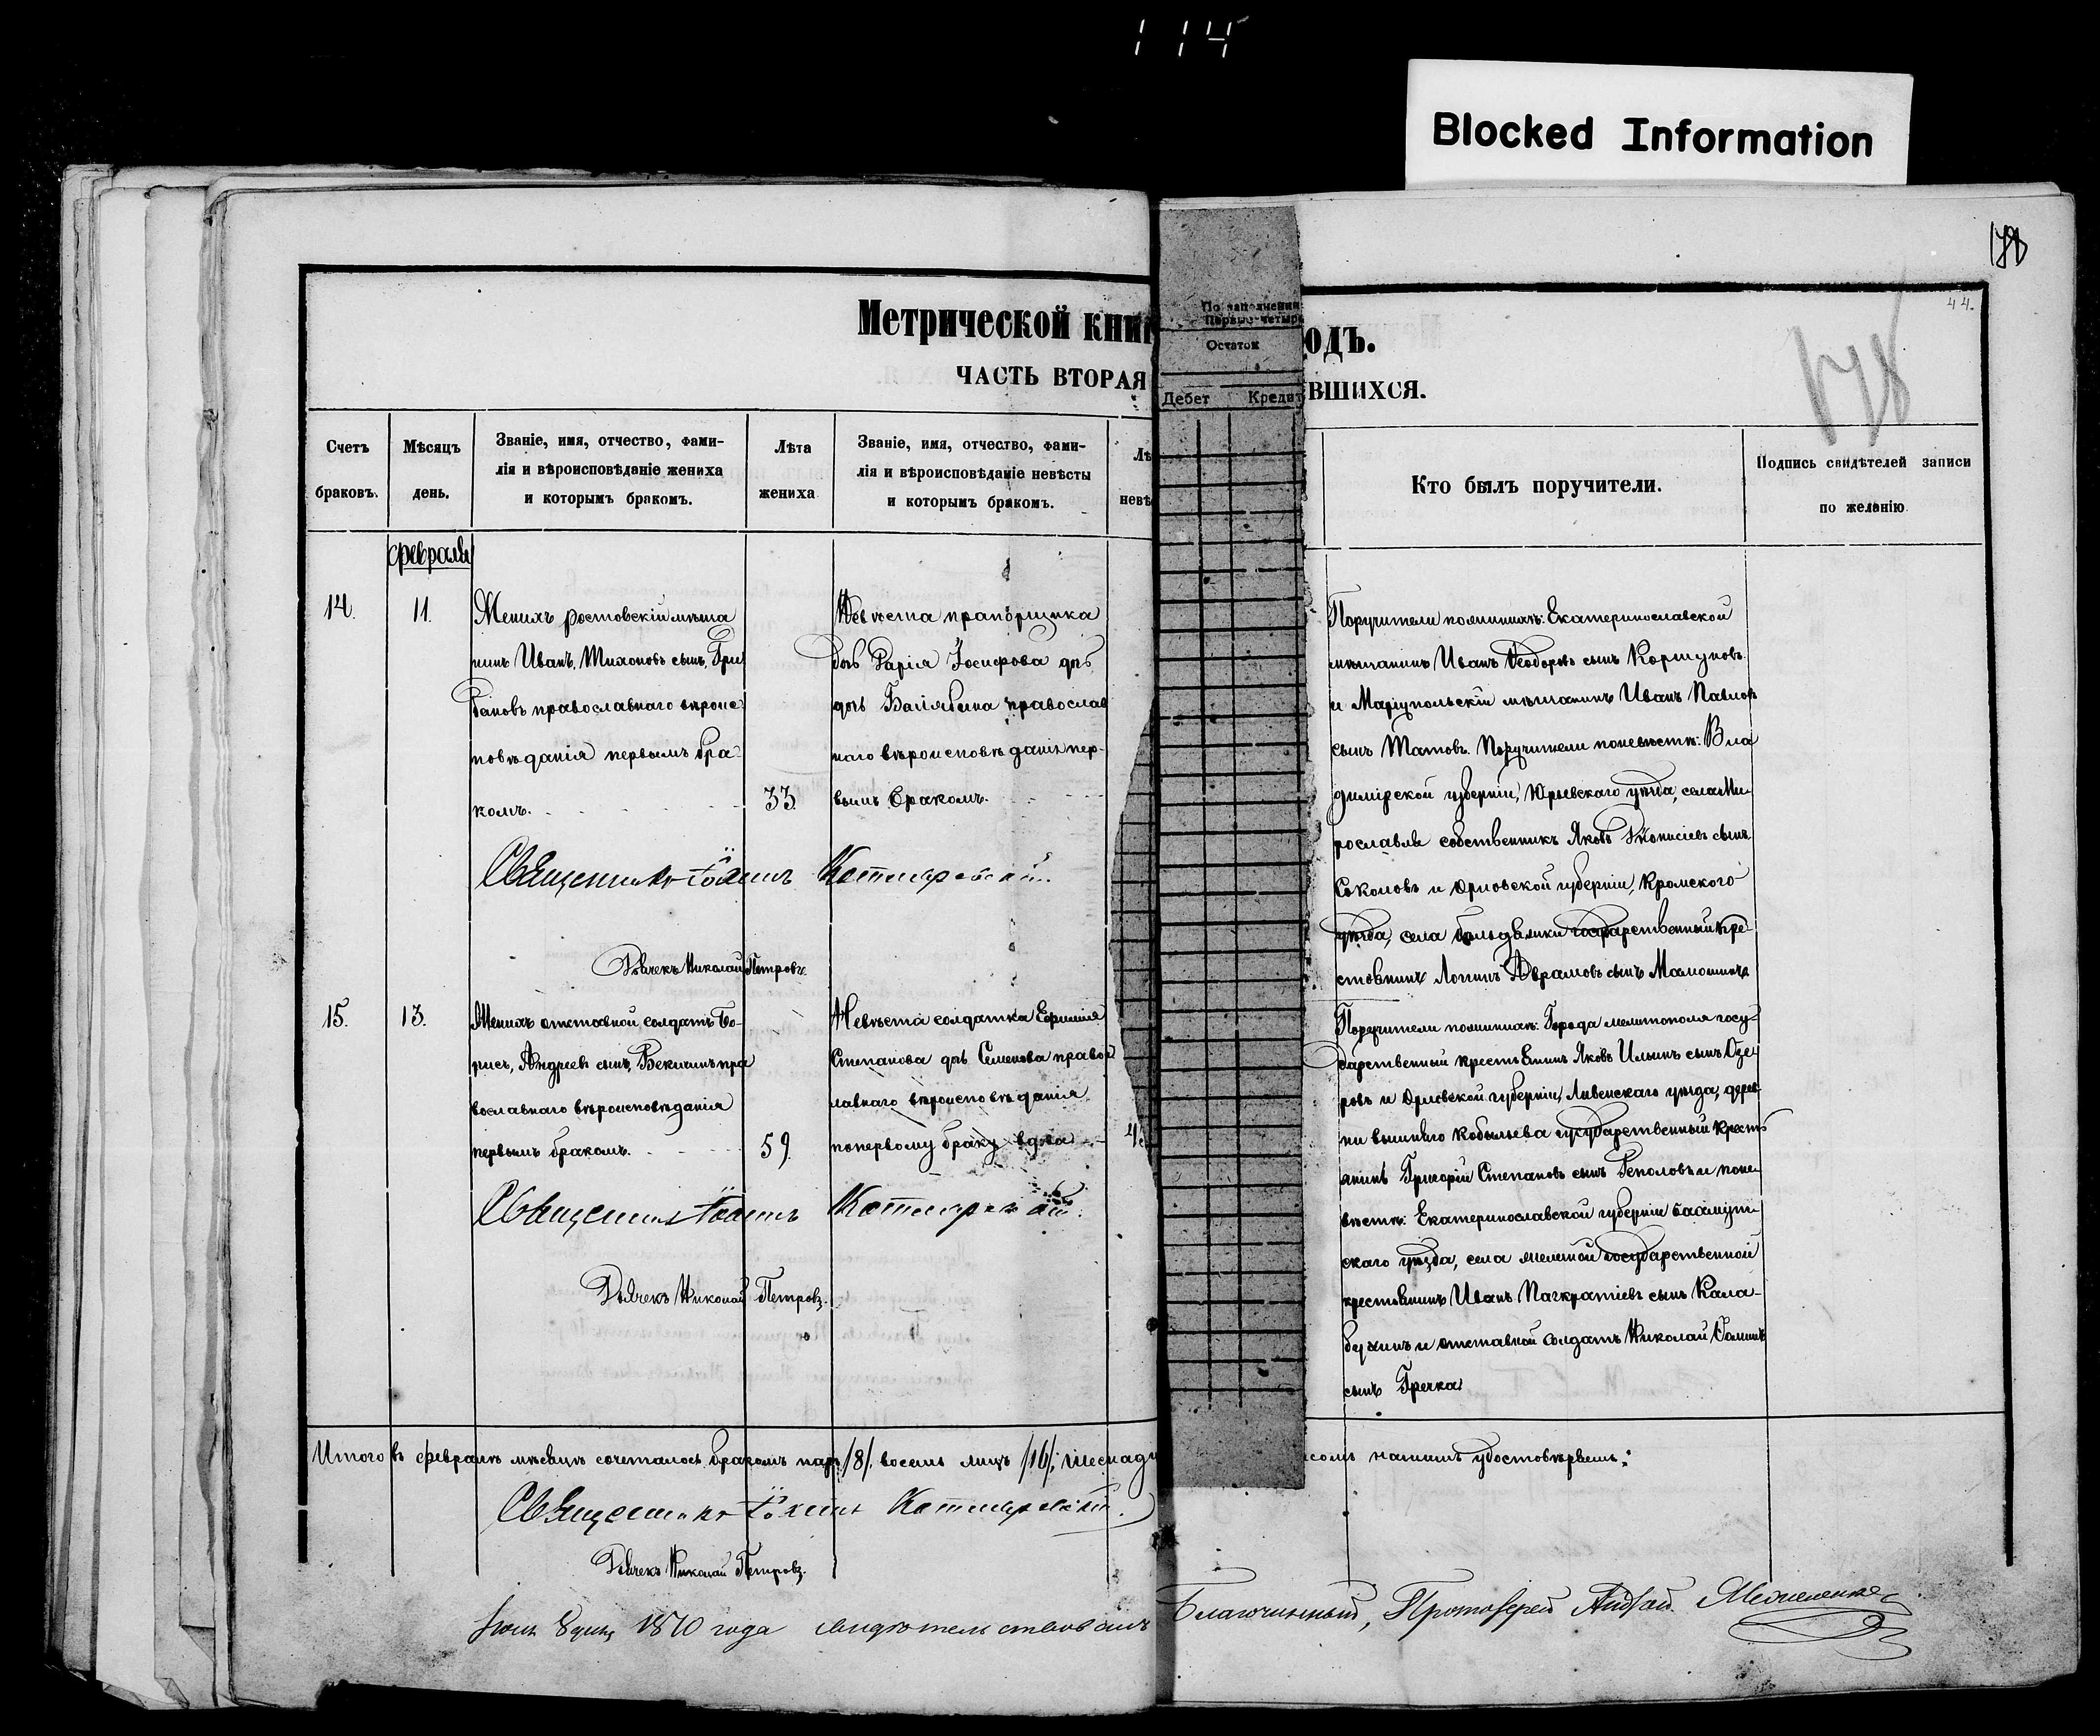 114
Blocked Information
44.
178
Метрической книг
одъ.
ЧАСТЬ ВТОРАЯ
ВШИХСЯ.
По заполнении
Первые четыре
Остаток
Дебет Кредит
Счетъ браковъ.
Мѣсяцъ день.
Званіе, имя, отчество, фами-
лія и вѣроисповѣданіе жениха
и которымъ бракомъ.
Лѣта жениха
Званіе, имя, отчество, фами-
лія и вѣроисповѣданіе невѣсты
и которымъ бракомъ.
Лѣ
невѣ
Кто былъ поручители.
Подпись свидѣтелей записи
по желанію
февраль
14.
11.
Женихъ ростовскій мѣща
нинъ Иванъ, Тихоновъ сынъ, Гри
бановъ православнаго вѣроис
повѣданія первымъ бра-
комъ.
33.
Невѣста прапорщика
Іосифова
православ
наго вѣроисповѣданія пер-
вымъ бракомъ.
Поручители по женихѣ: Екатеринославской
мѣщанинъ Иванъ Ѳеодоровъ сынъ Коршуновъ
и Маріупольскій мѣщанинъ Иванъ Павлов
сынъ Татовъ. Поручители по невѣстѣ: Вла
димірской губерніи, Юрьевскаго уѣзда, села Ми
рославля собственникъ Яковъ Діонисіевъ сынъ
Соколовъ и Орловской губерніи, Кромского
уѣзда, села государственный кре-
стьянинъ Логинъ Аврамовъ сынъ
Священникъ Іоаннъ Котляревскій.
Дьячекъ Николай Петровъ.
15.
13.
Женихъ отставной солдатъ Бо-
рисъ, Андреевъ сынъ, пра
вославнаго вѣроисповѣданія
первымъ бракомъ.
59.
Невѣста солдатка Евфимія
Степанова дчь Семенова правос
лавнаго вѣроисповѣданія
по первому браку вдова
4
Поручители по женихѣ: Города Мелитополя госу-
дарственный крестьянинъ Яковъ Ильинъ сынъ Озе
ровъ и Орловской губерніи, Ливенскаго уѣзда, дерев
ни вышняго государственный кресть
янинъ Григорій Степановъ сынъ и по не
вѣстѣ: Екатеринославской губерніи Бахмут
скаго уѣзда, села государственной
крестьянинъ Иванъ Панкратіевъ сынъ Кала-
бухинъ и отставной солдатъ Николай
сынъ Гречка
Священникъ Іоаннъ Котляревскій.
Дьячекъ Николай Петровъ.
Итого въ февралѣ мѣсяцѣ сочеталось бракомъ паръ /8/. восемь лицъ /16/; шеснадц
сомъ нашимъ удостовѣряемъ:
Священникъ Іоаннъ Котляревскій.
Дьячекъ Николай Петровъ.
8 дня 1870 года свидѣтельствовалъ Благочинный, Протоіерей